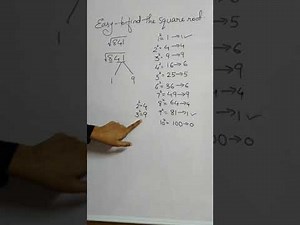 Easy to find the square root
√841
√841
1 9
2²=4
3²=9
1² = 1 → 1 ✓
2² = 4 → 4
3² = 9 → 9
4² = 16 → 6
5² = 25 → 5
6² = 36 → 6
7² = 49 → 9
8² = 64 → 4
9² = 81 → 1 ✓
10² = 100 → 0